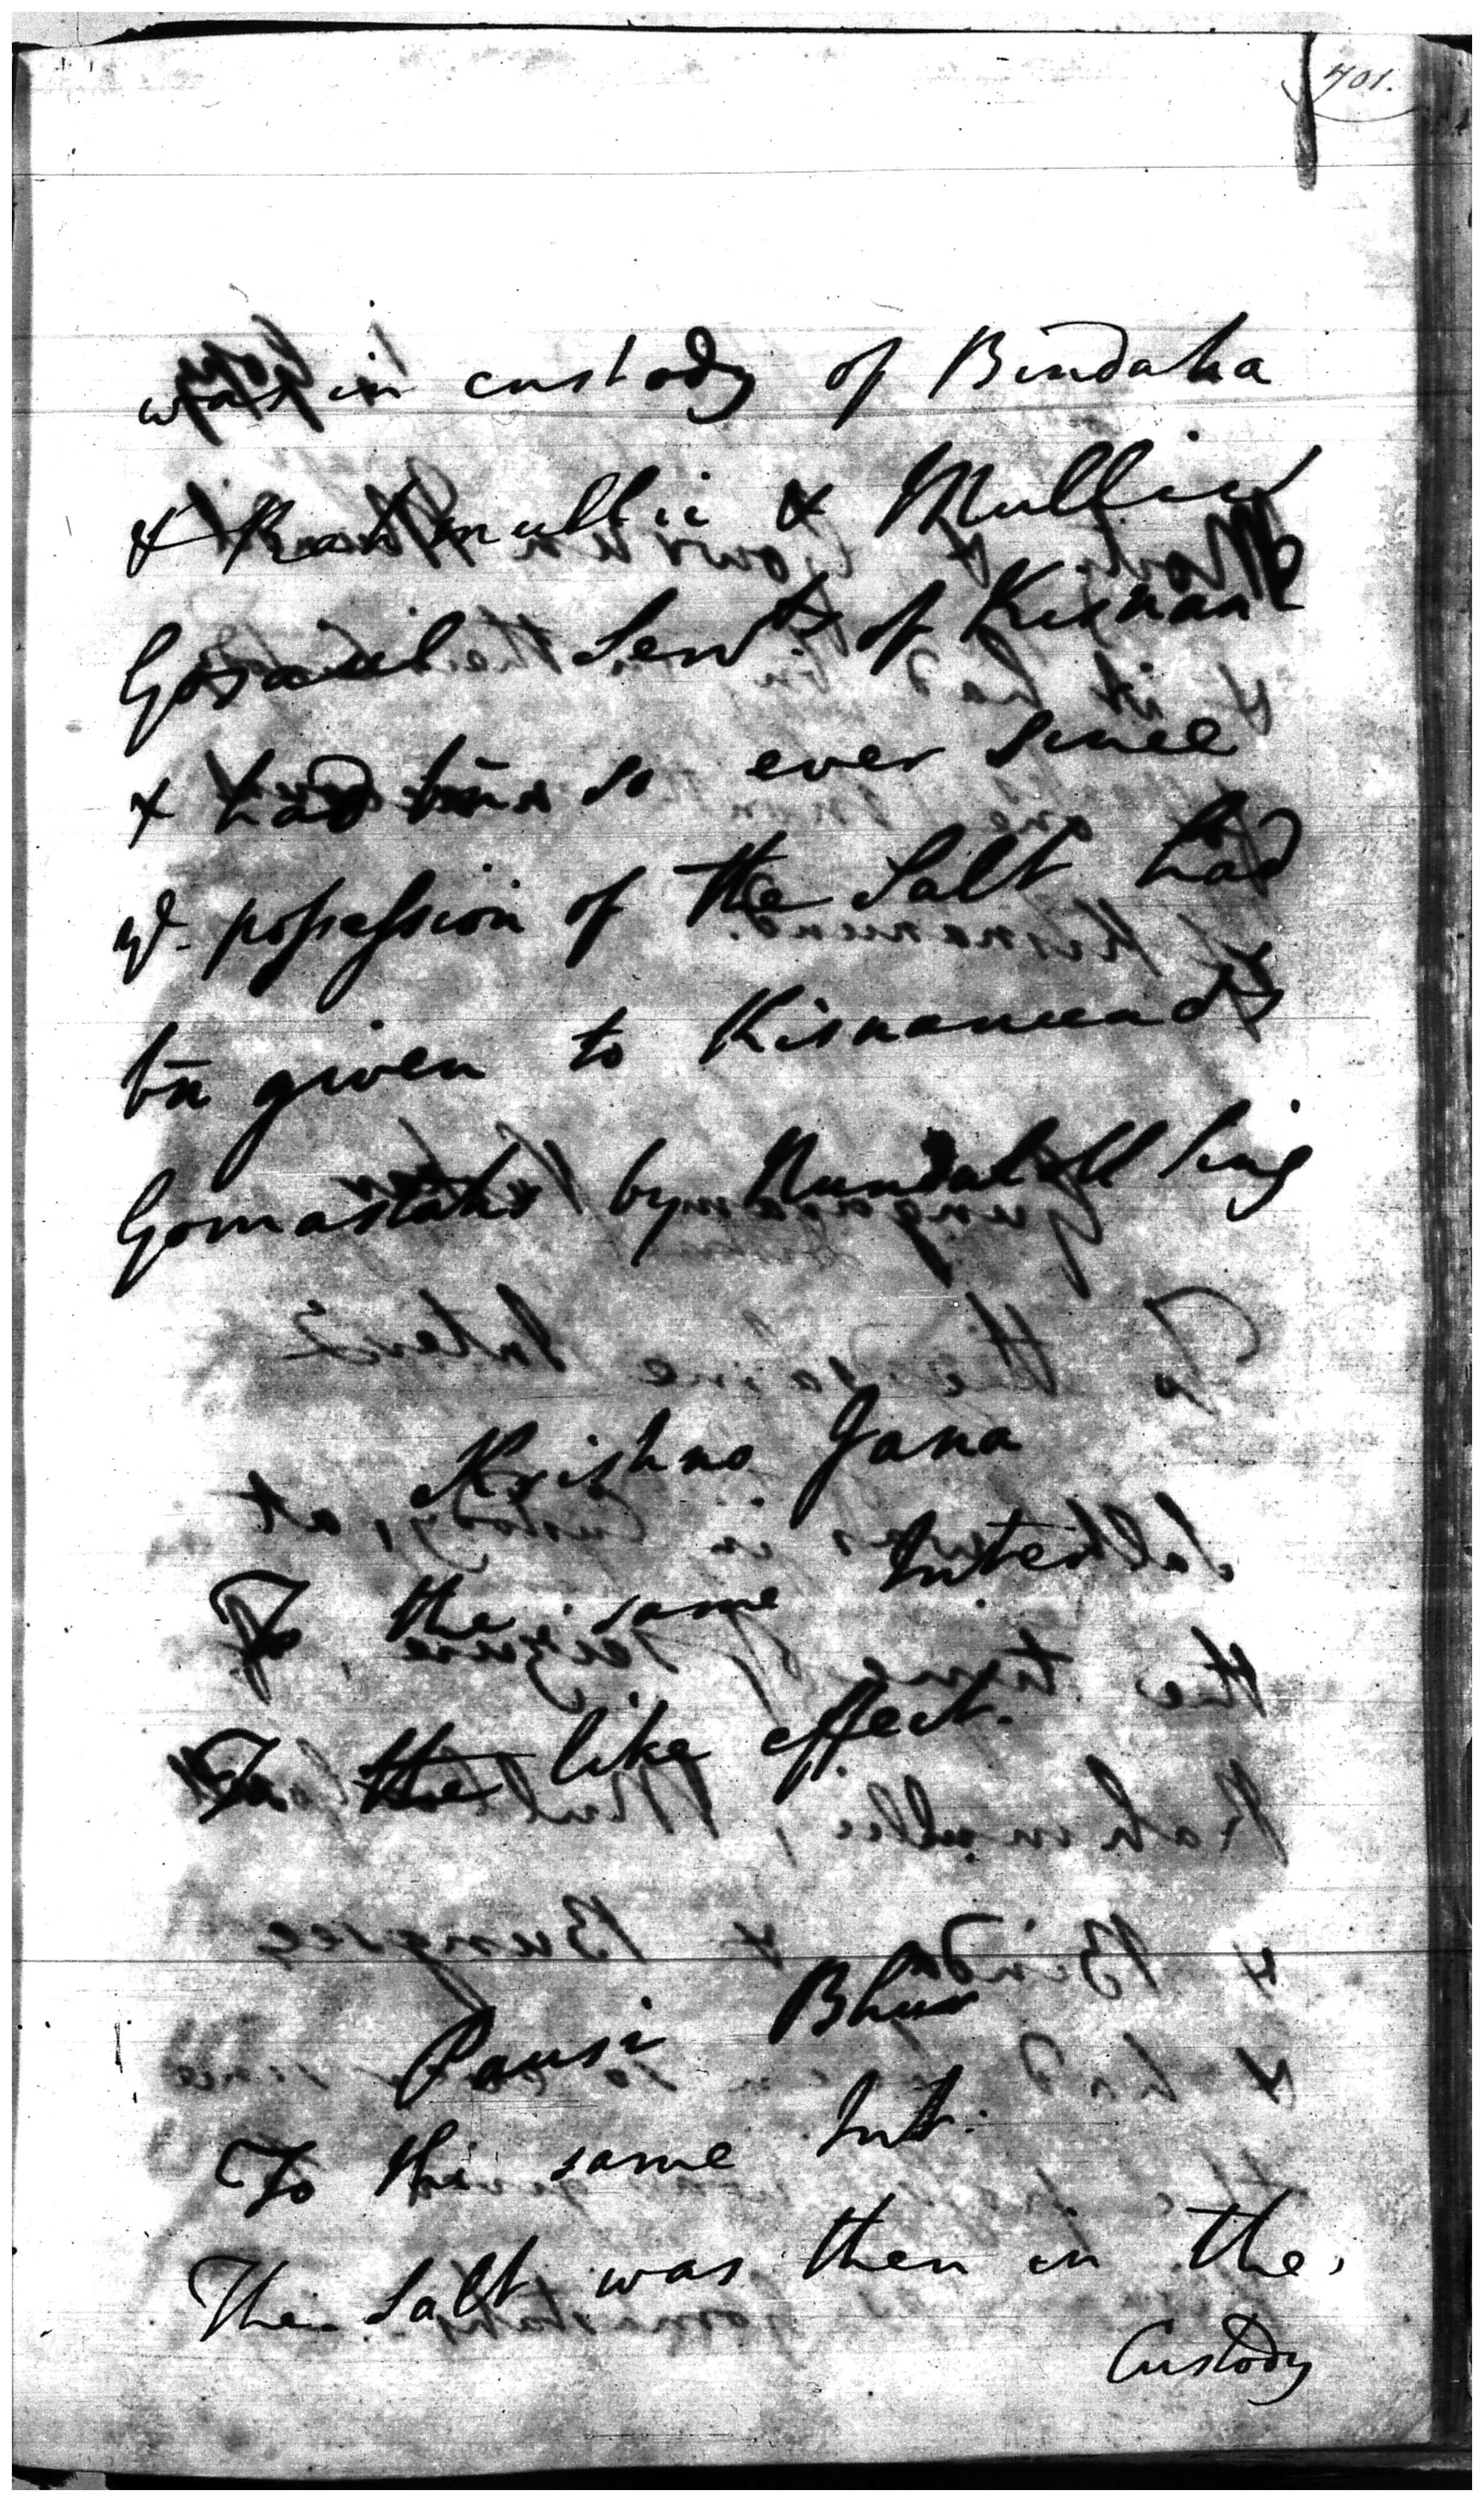 401.
was in custody of Bindaka
& Rahmullie & Mullick
Gosaul Servts of Kisnan
& had bn so ever since
yt possession of the Salt had
bn given to Kisnanund's
Gomastahs by Nundaloll Sing
Krishno Jana
To the same Interr
To the like effect.
Pausi Bhur
To the same Int:
The Salt was then in the
Custody